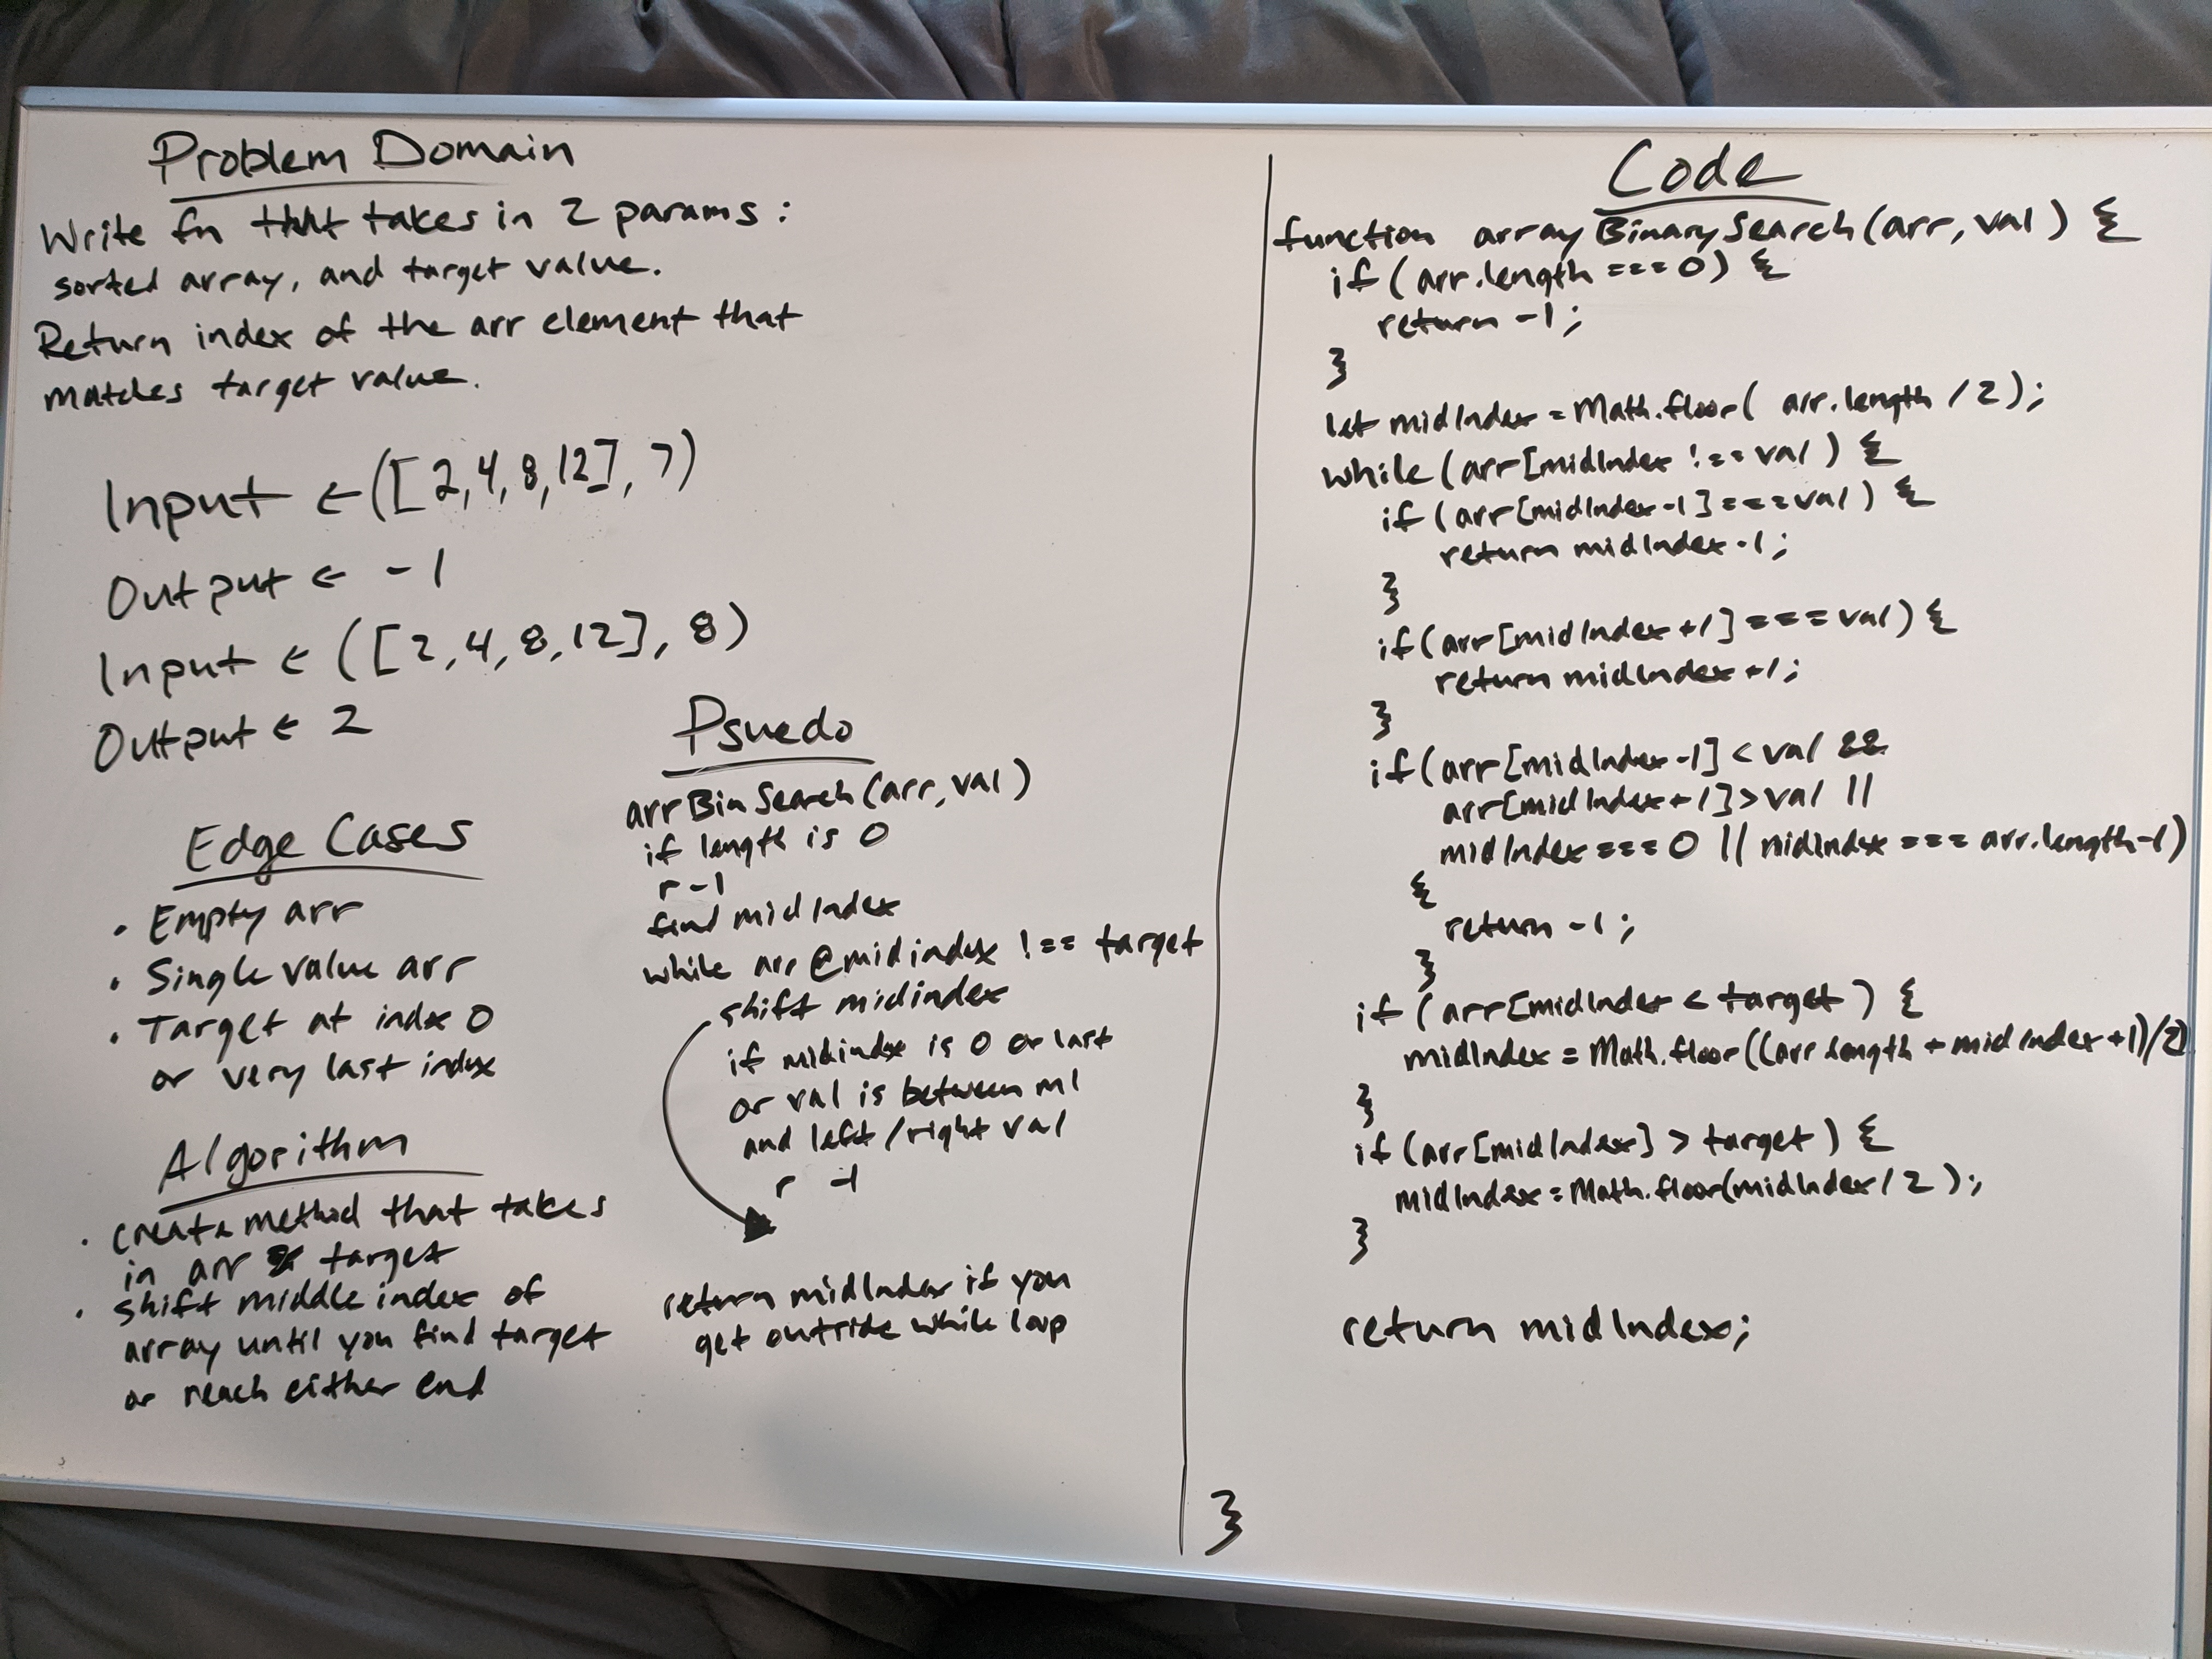 Problem Domain
Write fn that takes in 2 params:
sorted array, and target value.
Return index of the arr element that
matches target value.
Input ← ([2,4,8,12], 7)
Output ← -1
Input ← ([2,4,8,12], 8)
Output ← 2
Edge Cases
• Empty arr
• Single value arr
• Target at index 0
or very last index
Algorithm
• create method that takes
in arr & target
• shift middle index of
array until you find target
or reach either end
Psuedo
arrBinSearch(arr, val)
if length is 0
r -1
find midIndex
while arr @midindex !== target
shift midindex
if midindex is 0 or last
or val is between mI
and left/right val
r -1
return midIndex if you
get outside while loop
Code
function arrayBinarySearch(arr, val) {
if (arr.length === 0) {
return -1;
}
let midIndex = Math.floor( arr.length / 2);
while (arr[midIndex !== val) {
if (arr[midIndex-1] === val) {
return midIndex-1;
}
if(arr[midIndex+1] === val) {
return midIndex+1;
}
if(arr[midIndex-1] < val &&
arr[midIndex+1] > val ||
midIndex === 0 || midIndex === arr.length-1)
{
return -1;
}
if (arr[midIndex < target) {
midIndex = Math.floor((arr.length + midIndex+1)/2)
}
if (arr[midIndex] > target) {
midIndex = Math.floor(midIndex/2);
}
return midIndex;
}